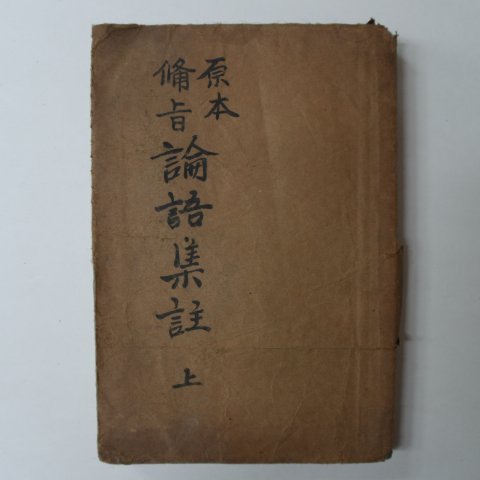 原本
備旨
論語集註
上